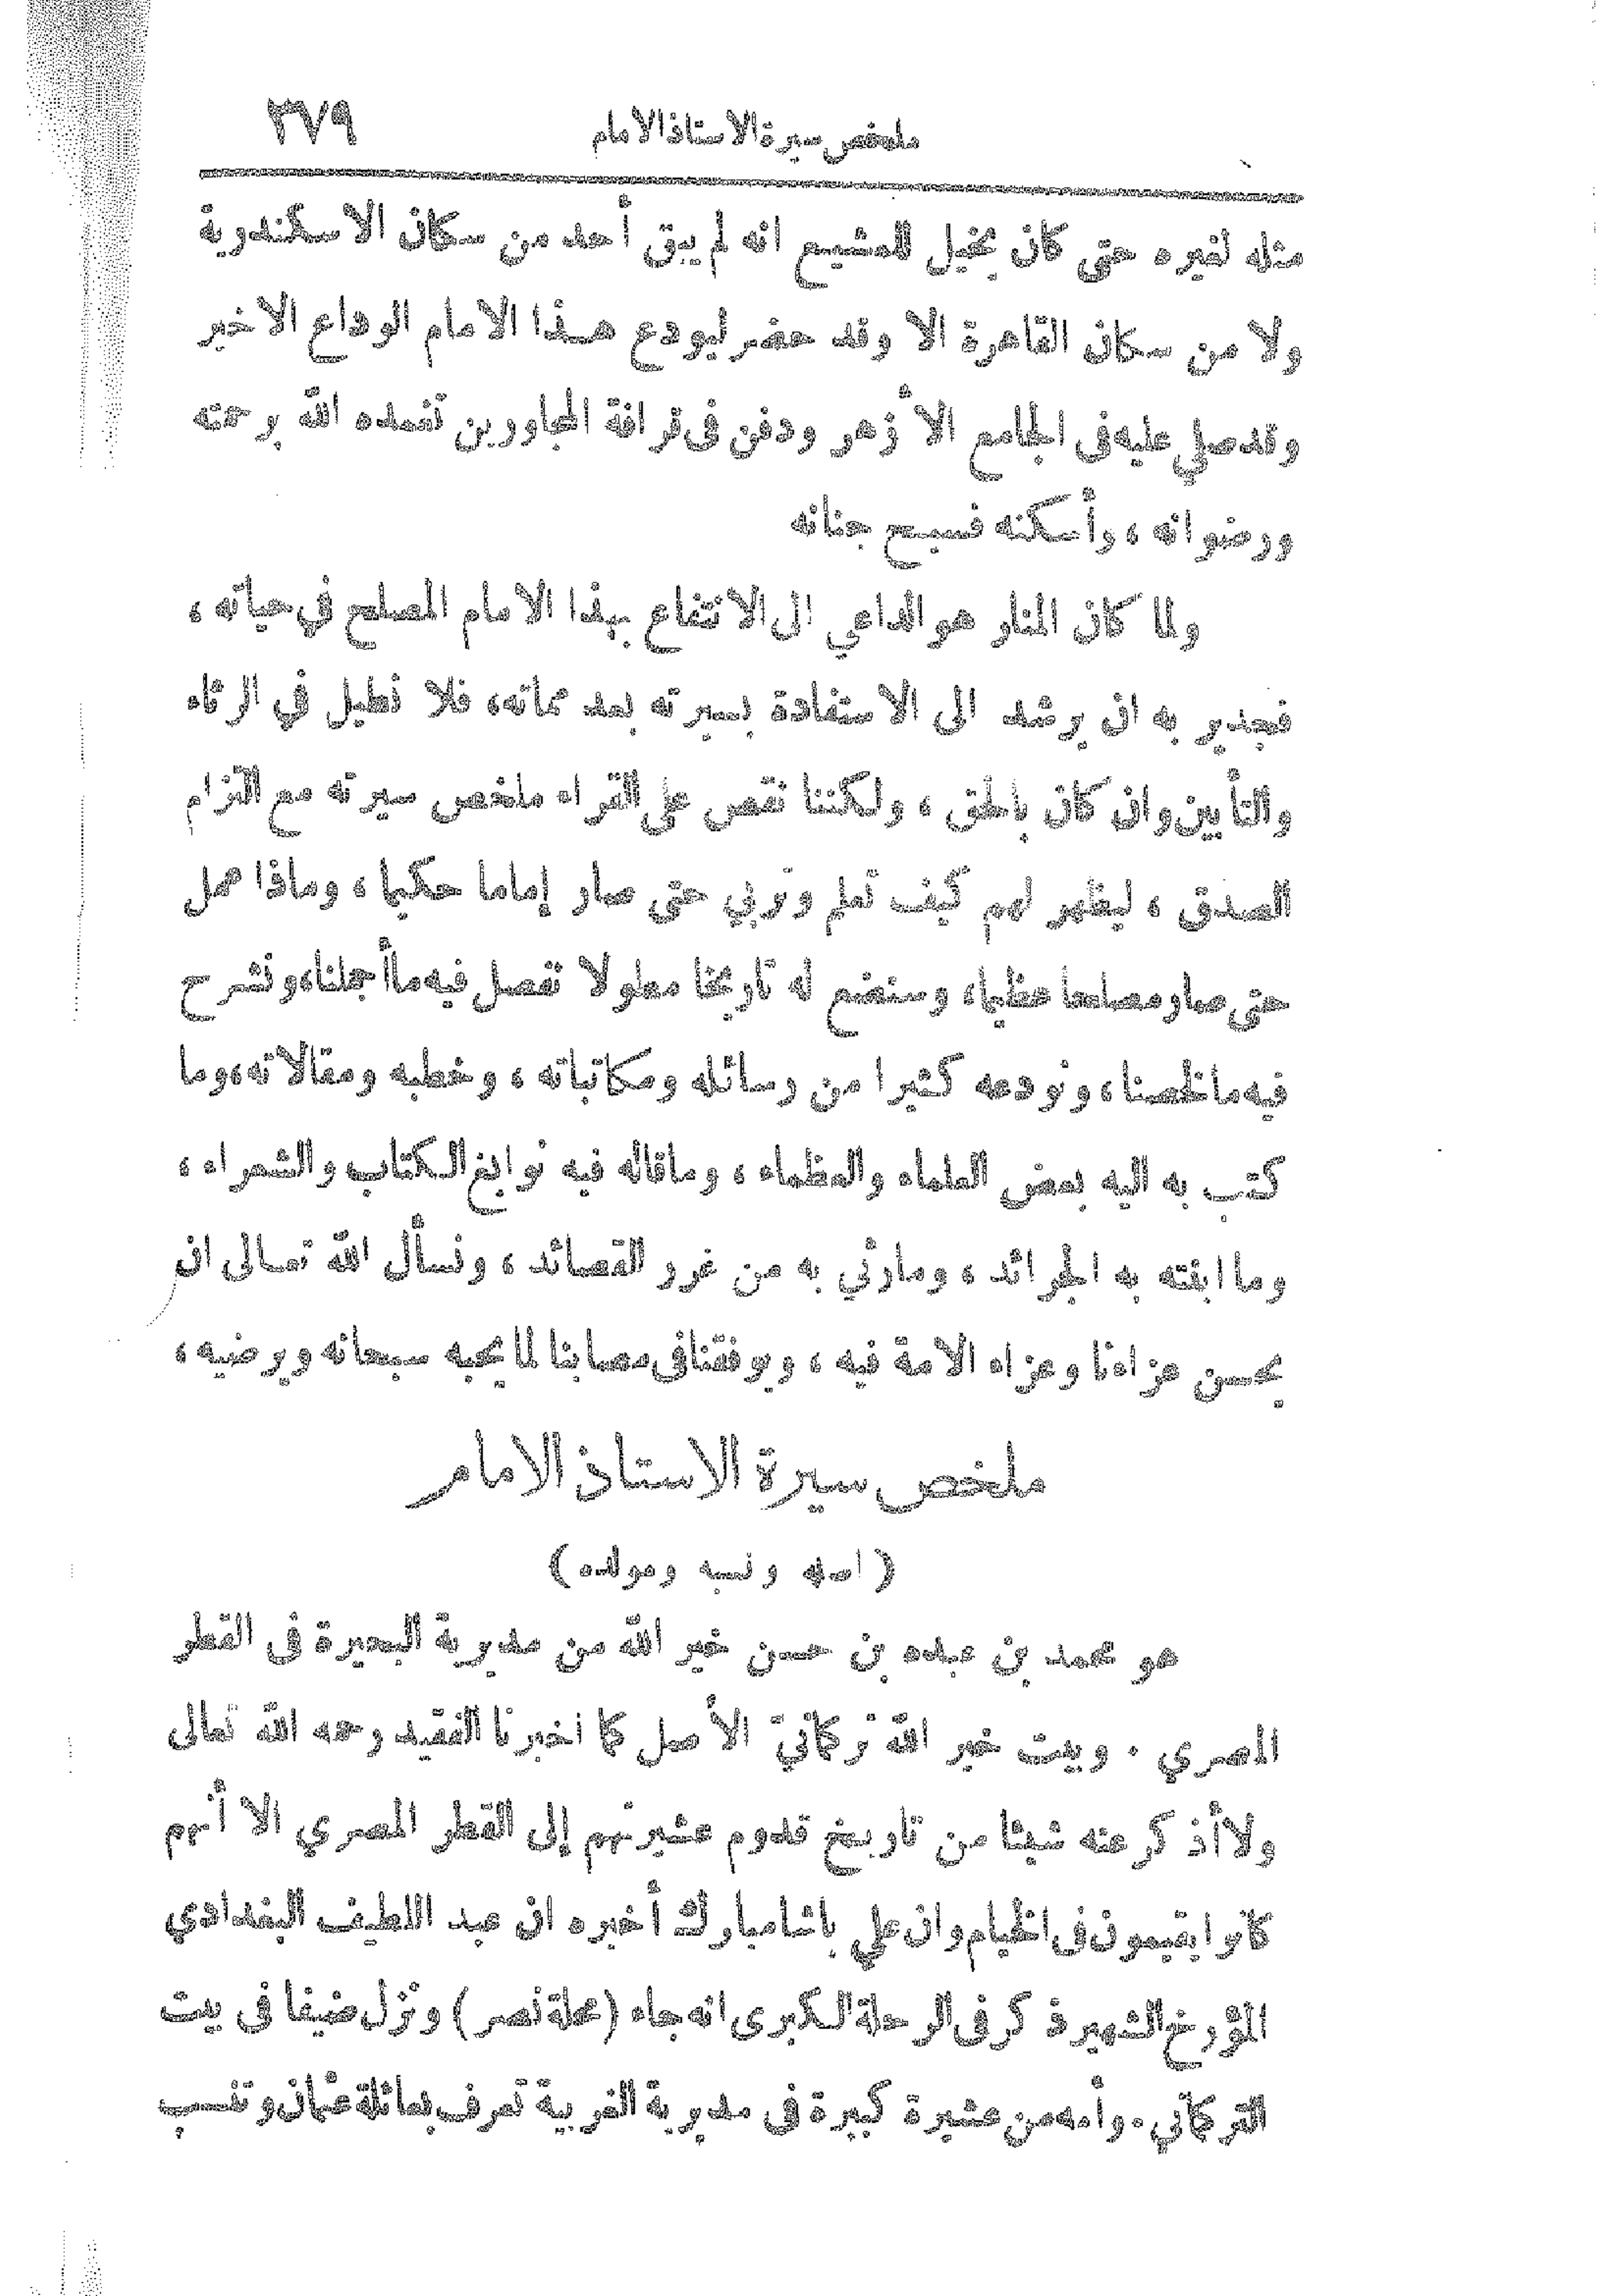 ملخص سيرة الاستاذ الامام ٣٧٩
مثله لغيره حتى كان يخيل للمشيع انه لم يبق أحد من سكان الاسكندرية
ولا من سكان القاهرة الا وقد حضر ليودع هذا الامام الوداع الاخير
وقد صلي عليه فى الجامع الأزهر ودفن فى قرافة المجاورين تغمده الله برحمته
ورضوانه ، وأسكنه فسيح جنانه
ولما كان المنار هو الداعي الى الانتفاع بهذا الامام المصلح في حياته ،
فجدير به ان يرشد الى الاستفادة بسيرته بعد مماته، فلا نطيل في الرثاء
والتأبين وان كان بالحق ، ولكننا نقص على القراء ملخص سيرته مع التزام
الصدق ، ليظهر لهم كيف تعلم وتربي حتى صار إماما حكيما ، وماذا عمل
حتى صار مصلحا عظيما، وسنضع له تاريخا مطولا نفصل فيه ما أجملنا، ونشرح
فيه ما لخصنا ، ونودعه كثيرا من رسائله ومكاتباته ، وخطبه ومقالاته، وما
كتب به اليه بعض العلماء والعظماء ، وما قاله فيه نوابغ الكتاب والشعراء ،
وما ابنته به الجرائد ، وما رثي به من غرر القصائد ، ونسأل الله تعالى ان
يحسن عزاءنا وعزاء الامة فيه ، ويوفقنا فى مصابنا لما يحبه سبحانه ويرضيه ،
ملخص سيرة الاستاذ الامام
( اصله ونسبه ومولده )
هو محمد بن عبده بن حسن خير الله من مديرية البحيرة فى القطر
المصري . وبيت خير الله تركمانيّ الأصل كما اخبرنا الفقيد رحمه الله تعالى
ولا أذكر عنه شيئا من تاريخ قدوم عشيرتهم إلى القطر المصري الا أنهم
كانوا يقيمون فى الخيام وان علي باشا مبارك أخبره ان عبد اللطيف البغدادي
المؤرخ الشهير ذكر فى الرحلة الكبرى انه جاء (محلة نصر) ونزل ضيفا فى بيت
التركماني . وأمه من عشيرة كبيرة فى مديرية الغربية تعرف بعائلة عثمان وتنسب